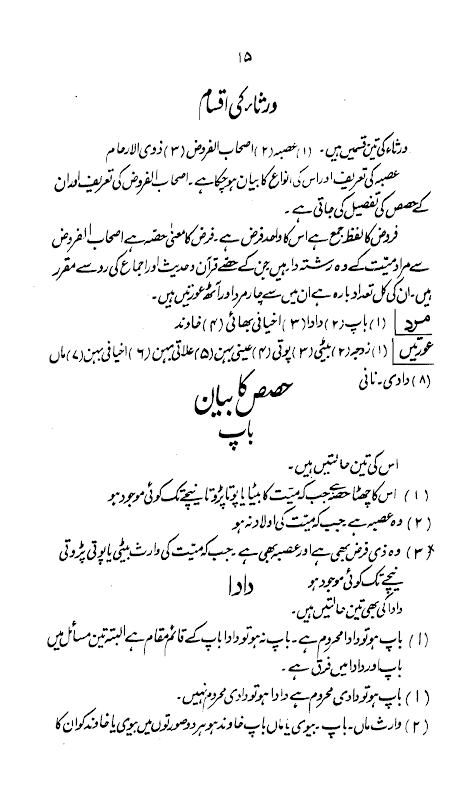 ۱۵
ورثاء کی اقسام
ورثاء کی تین قسمیں ہیں۔ (۱) عصبہ (۲) اصحاب الفروض (۳) ذوی الارحام
عصبہ کی تعریف اور اس کی انواع کا بیان ہو چکا ہے۔ اصحاب الفروض کی تعریف اور ان
کے حصص کی تفصیل کی جاتی ہے۔
فروض کا لفظ جمع ہے اس کا واحد فرض ہے۔ فرض کا معنیٰ حصّہ ہے اصحاب الفروض
سے مراد میّت کے وہ رشتہ دار ہیں جن کے حصّے قرآن و حدیث اور اجماع کی رو سے مقرر
ہیں۔ ان کی کل تعداد بارہ ہے ان میں سے چار مرد اور آٹھ عورتیں ہیں۔
مرد (۱) باپ (۲) دادا (۳) اخیافی بھائی (۴) خاوند
عورتیں (۱) زوجہ (۲) بیٹی (۳) پوتی (۴) عینی بہن (۵) علاتی بہن (۶) اخیافی بہن (۷) ماں
(۸) دادی۔ نانی
حصص کا بیان
باپ
اس کی تین حالتیں ہیں۔
(۱) اس کا چھٹا حصّہ ہے جب کہ میّت کا بیٹا یا پوتا پڑوتا نیچے تک کوئی موجود ہو
(۲) وہ عصبہ ہے جب کہ میّت کی اولاد نہ ہو
(۳) وہ ذی فرض بھی ہے اور عصبہ بھی ہے۔ جب کہ میّت کی وارث بیٹی یا پوتی پڑوتی
نیچے تک کوئی موجود ہو
دادا
دادا کی بھی تین حالتیں ہیں۔
(۱) باپ ہو تو دادا محروم ہے۔ باپ نہ ہو تو دادا باپ کے قائم مقام ہے البتہ تین مسائل میں
باپ اور دادا میں فرق ہے۔
(۱) باپ ہو تو دادی محروم ہے دادا ہو تو دادی محروم نہیں۔
(۲) وارث ماں۔ باپ۔ بیوی یا ماں باپ خاوند ہو ہر دو صورتوں میں بیوی یا خاوند کو ان کا